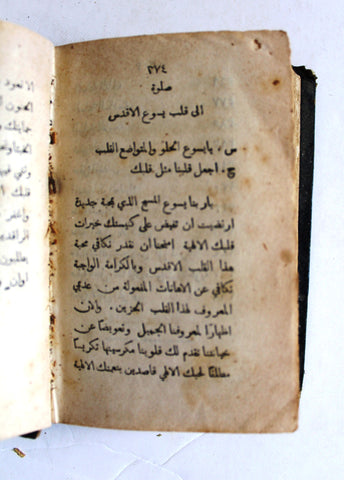 ٢٧٤
صلوة
الى قلب يسوع الاقدس
س . يا يسوع الحلو والمتواضع القلب
ج . اجعل قلبنا مثل قلبك
يا ربنا يسوع المسيح الذي بمحبة جديدة
ارتضيت ان تفيض على كنيستك خيرات
قلبك الالهية امنحنا ان نقدر نكافي محبة
هذا القلب الاقدس وبالكرامة الواجبة
نكافي عن الاهانات المفعولة من عديمي
المعروف لهذا القلب الحزين . والان
اظهارًا لمعروفنا الجميل وتعويضًا عن
خيانتنا نقدم لك قلوبنا مكرسينها تكريسًا
مطلقًا لحبك الالهي قاصدين بنعمتك الالهية
قلبك
واغفر